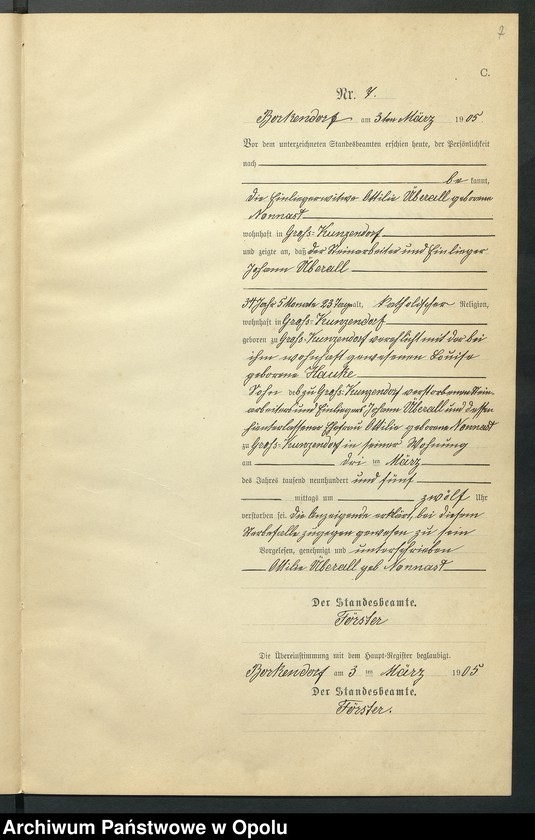 7
C.
Nr. 7.
Borkendorf am 3ten März 1905
Vor dem unterzeichneten Standesbeamten erschien heute, der Persönlichkeit
nach
be kannt,
die Einliegerwitwe Ottilie Überall geborene
Nonnast
wohnhaft in Groß-Kunzendorf
und zeigte an, daß der Steinarbeiter und Einlieger
Johann Überall
34 Jahr 5 Monate 23 Tage alt, katholischer Religion,
wohnhaft in Groß-Kunzendorf
geboren zu Groß-Kunzendorf verehlicht mit der bei
ihm wohnhaft gewesenen Louise
geborene Hauke
Sohn des zu Groß-Kunzendorf verstorbenen Stein-
arbeiters und Einliegers Johann Überall und dessen
hinterlassener Ehefrau Ottilie geborene Nonnast
zu Groß-Kunzendorf in seiner Wohnung
am drei ten März
des Jahres tausend neunhundert und fünf
mittags um zwölf Uhr
verstorben sei. Die Anzeigende erklärt, bei diesem
Sterbefalle zugegen gewesen zu sein
Vorgelesen, genehmigt und unterschrieben
Ottilie Überall geb. Nonnast
Der Standesbeamte.
Förster
Die Übereinstimmung mit dem Haupt-Register beglaubigt.
Borkendorf am 3 ten März 1905
Der Standesbeamte.
Förster.
Archiwum Państwowe w Opolu